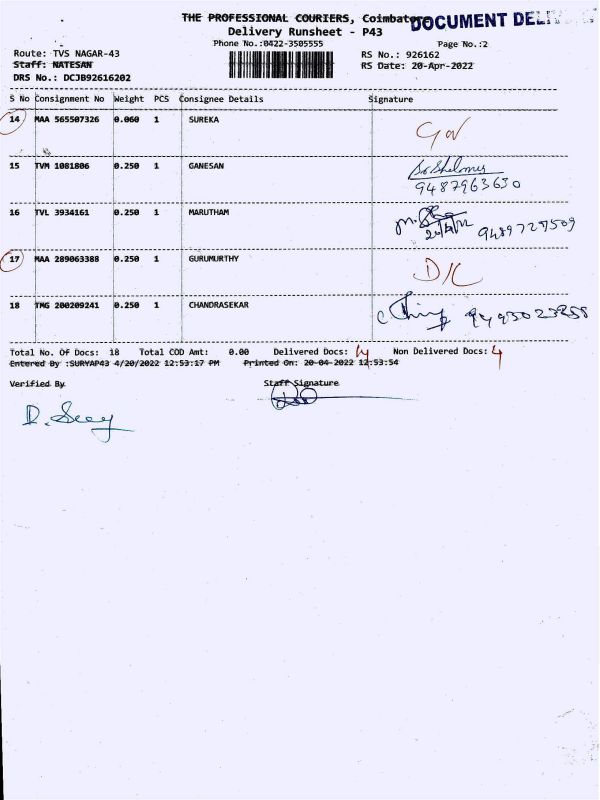 THE PROFESSIONAL COURIERS, Coimbatore
DOCUMENT
Delivery Runsheet - P43
Phone No.:0422-3505555
Page No.:2
Route: TVS NAGAR-43
RS No.: 926162
Staff: NATESAN
RS Date: 20-Apr-2022
DRS No.: DCJB92616202
S No Consignment No Weight PCS Consignee Details Signature
14 MAA 565507326 0.060 1 SUREKA
15 TVM 1081806 0.250 1 GANESAN
9487963630
16 TVL 3934161 0.250 1 MARUTHAM
9489727509
17 MAA 289063388 0.250 1 GURUMURTHY D/C
18 TMG 200209241 0.250 1 CHANDRASEKAR
Total No. Of Docs: 18 Total COD Amt: 0.00 Delivered Docs: 14 Non Delivered Docs: 4
Entered By :SURYAP43 4/20/2022 12:53:17 PM Printed On: 20-04-2022 12:53:54
Verified By Staff Signature